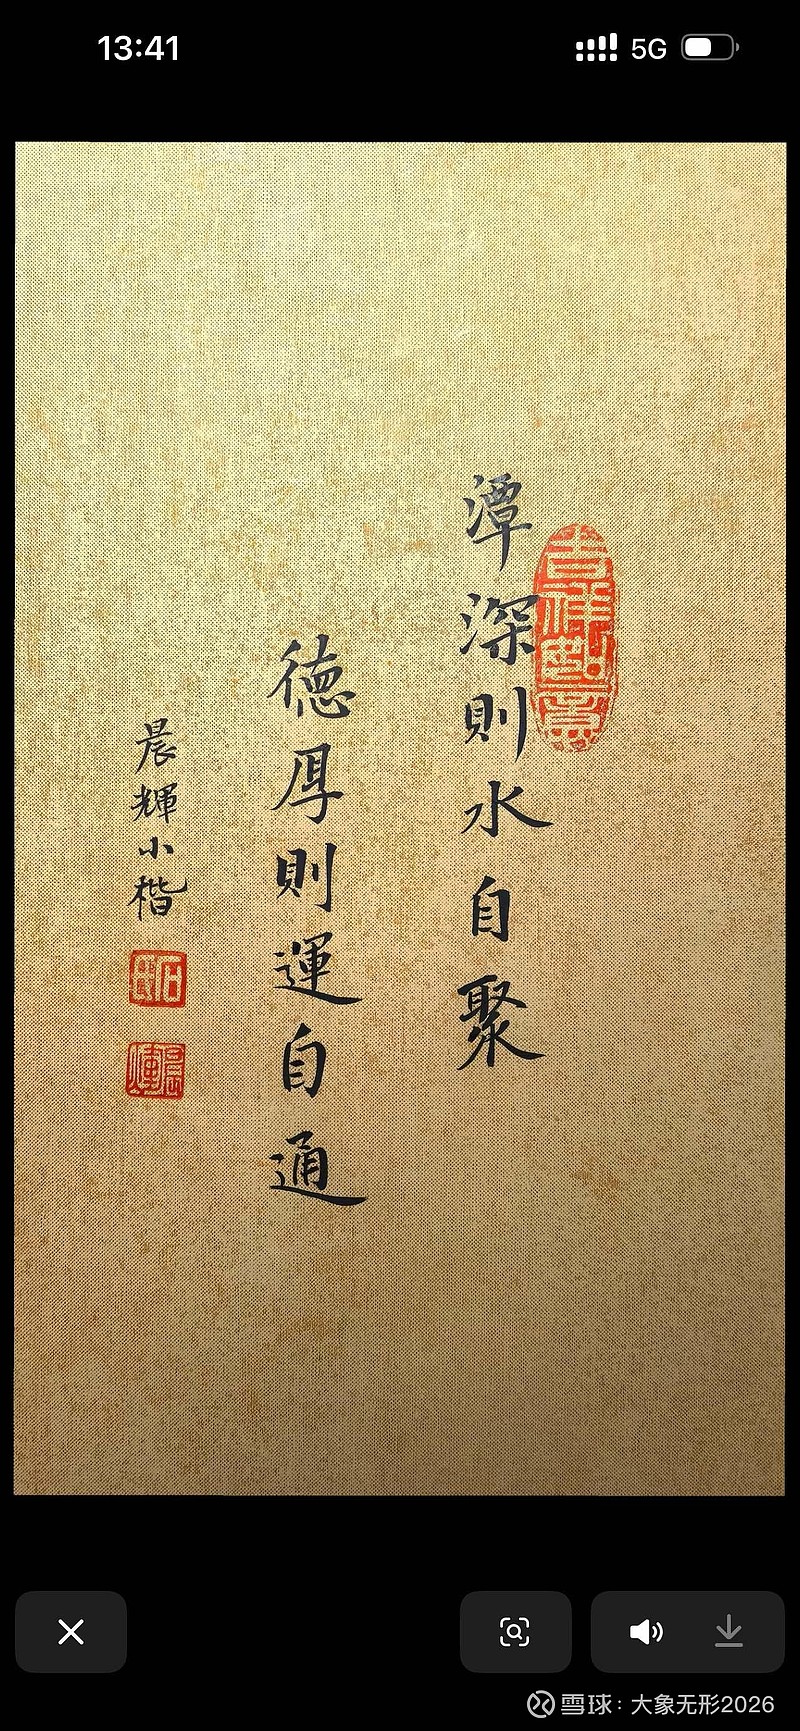 13:41
5G
潭深則水自聚
德厚則運自通
晨輝小楷
吉祥如意
雪球：大象无形2026